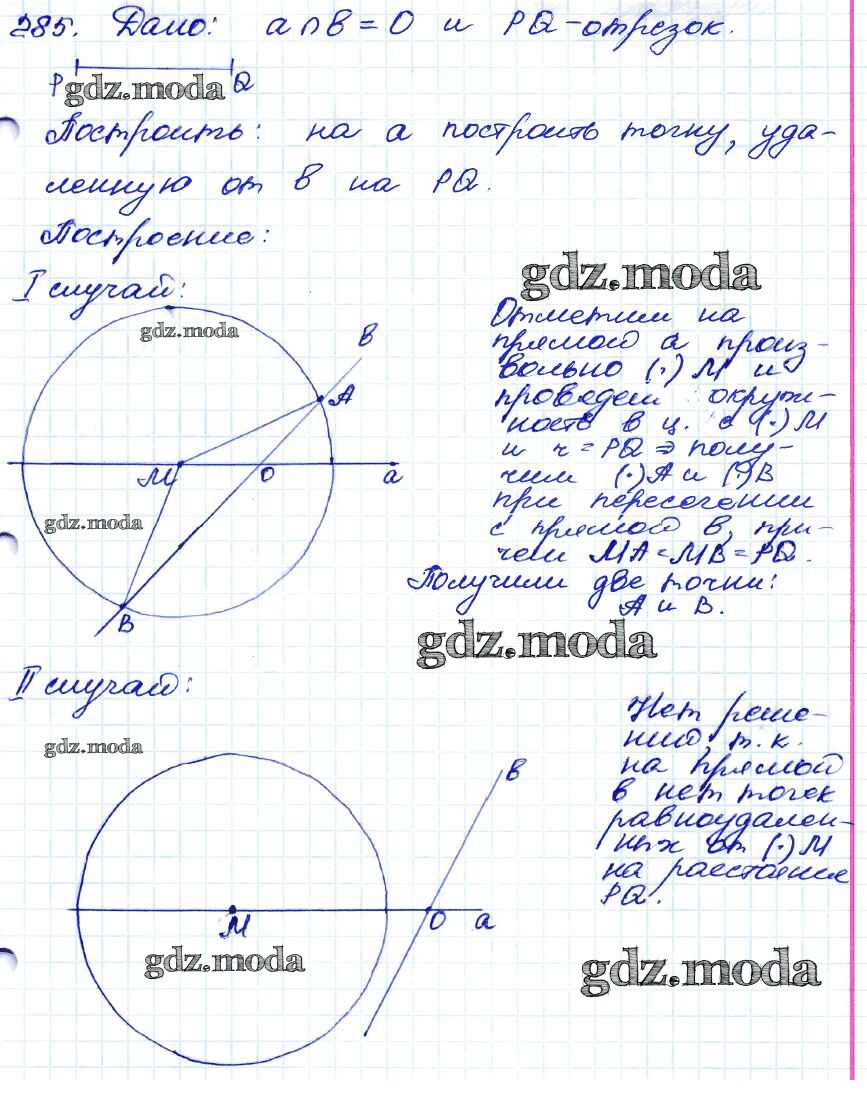 285. Дано: a∩b = O и PQ-отрезок.
P Q
gdz.moda
Построить: на a построить точку, уда-
ленную от b на PQ.
Построение:
I случай:
gdz.moda
gdz.moda
B
A
M O a
gdz.moda
B
Отметим на
прямой a произ-
вольно (·) M и
проведем окруж-
ность в ц. с (·) M
и r = PQ ⇒ полу-
чим (·) A и (·) B
при пересечении
с прямой b, при-
чем MA = MB = PQ.
Получили две точки:
A и B.
gdz.moda
II случай:
gdz.moda
B
M O a
gdz.moda
Нет реше-
ний, т.к.
на прямой
b нет точек
равноудален-
ных от (·) M
на расстояние
PQ.
gdz.moda